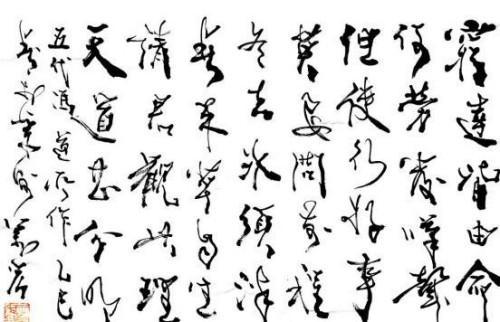 窮達皆由命
何勞發嘆聲
但使行好事
莫要問前程
冬去冰須泮
春來草自生
請君觀此理
天道甚分明
五代馮道所作 乙巳